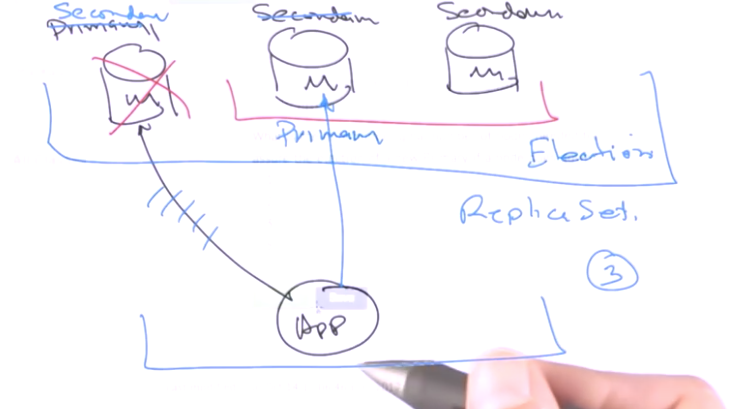 Secondary Secondary Secondary
Primary
M M M
Primary
Election
Replica Set.
3
App